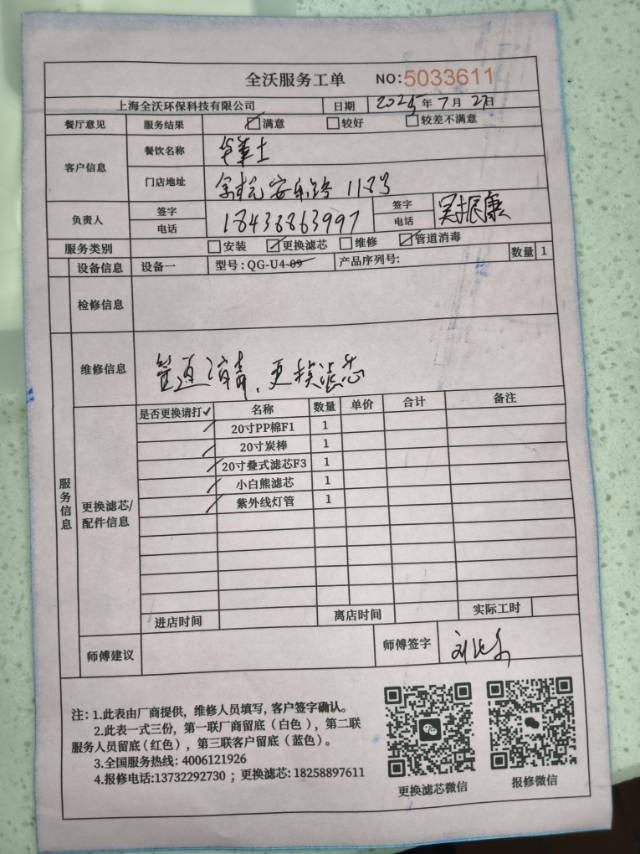 全沃服务工单 NO:5033611
上海全沃环保科技有限公司 日期 2025年7月27日
餐厅意见 服务结果 ☑满意 □较好 □较差不满意
客户信息 餐饮名称 华莱士
门店地址 余杭安乐路 1123
负责人 签字 电话 18436863997 签字 电话
服务类别 □安装 ☑更换滤芯 □维修 ☑管道消毒
设备信息 设备一 型号:QG-U4-09 产品序列号: 数量 1
检修信息
维修信息 管道消毒、更换滤芯
是否更换请打✓ 名称 数量 单价 合计 备注
✓ 20寸PP棉F1 1
✓ 20寸炭棒 1
✓ 20寸叠式滤芯F3 1
✓ 小白熊滤芯 1
✓ 紫外线灯管 1
服务信息
更换滤芯/配件信息
进店时间 离店时间 实际工时
师傅建议 师傅签字
注: 1.此表由厂商提供，维修人员填写, 客户签字确认。
2.此表一式三份，第一联厂商留底（白色），第二联
服务人员留底(红色)，第三联客户留底（蓝色）。
3.全国服务热线: 4006121926
4.报修电话:13732292730 ; 更换滤芯: 18258897611
更换滤芯微信 报修微信